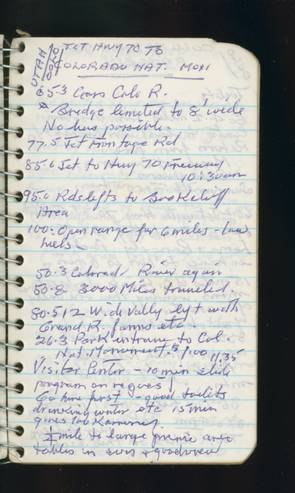 UTAH
COLO
JCT HWY 70 TO
COLORADO NAT. MON
65.3 Cross Colo R.
Bridge limited to 8' wide
No bus possible.
77.5 Jct Frontage Rd
85.0 Jct to Hwy 70 Freeway
10:30am
95.0 Rds lifts to Bookcliff
Area
100: Open range for 6 miles - low
hills
50.3 Colorado River again
50.8 3000 Miles traveled.
80.512 Wide Valley left with
Grand R. farms etc.
26.3 Park entrance to Col.
Nat. Monument $1.00
11:35
Visitor Center - 10 min slide
program on request
Go here first - good toilets
drinking water etc 15 min
1/4 mile to large picnic area
tables in sun & good view